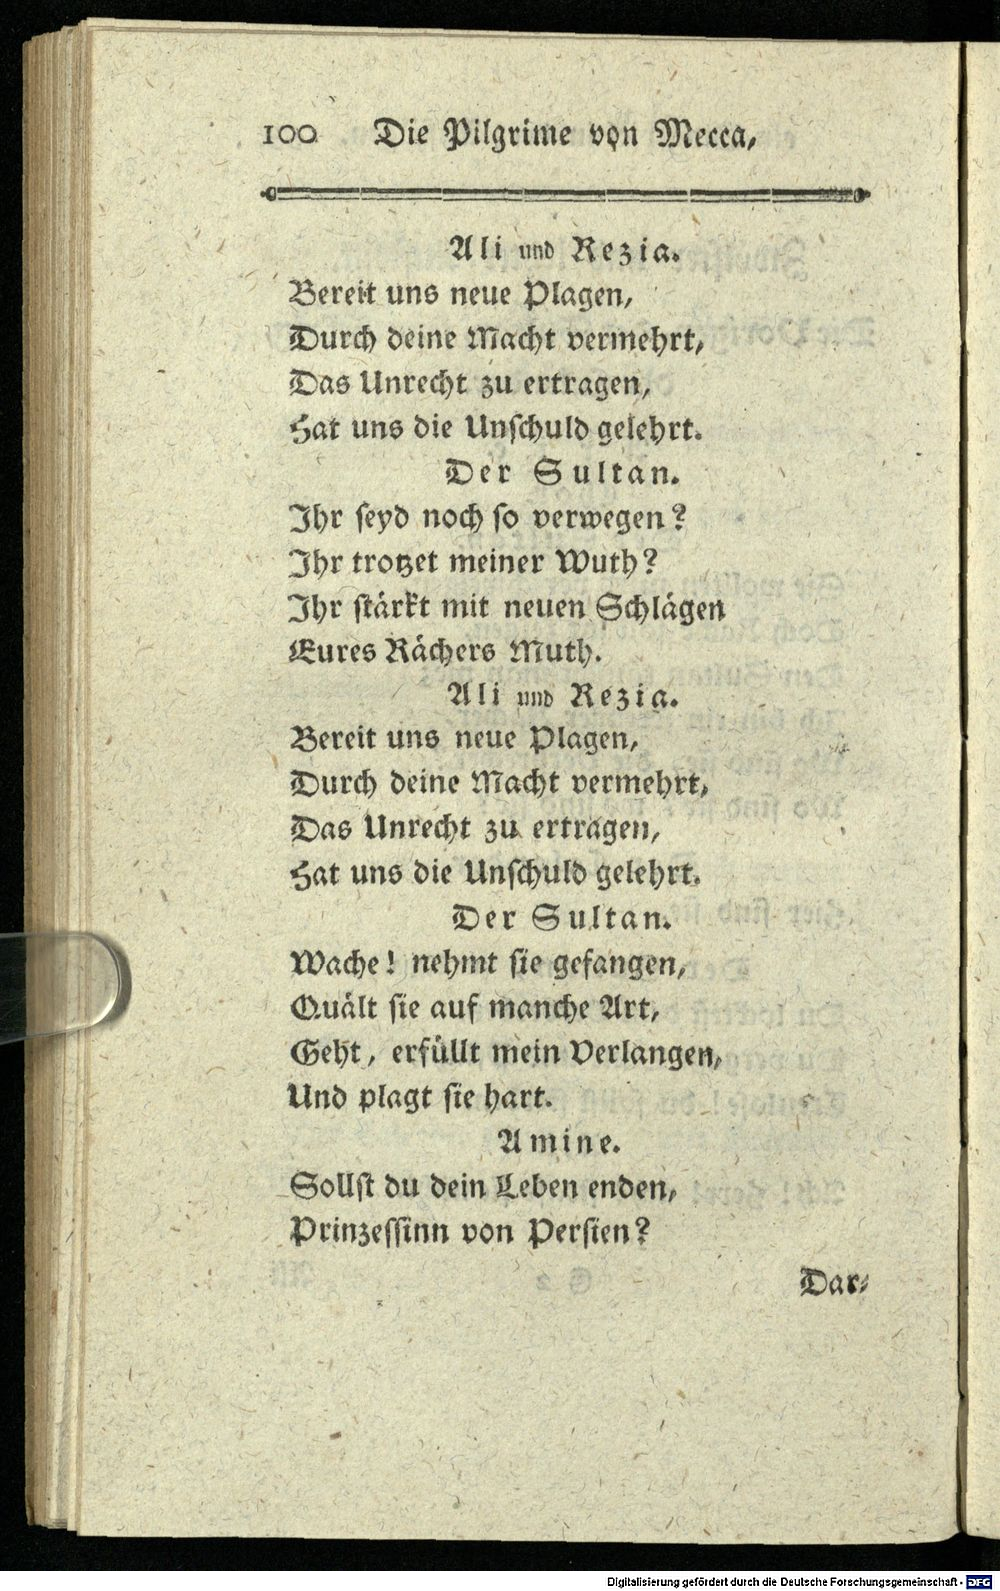 100 Die Pilgrime von Mecca,
Ali und Rezia.
Bereit uns neue Plagen,
Durch deine Macht vermehrt,
Das Unrecht zu ertragen,
Hat uns die Unschuld gelehrt.
Der Sultan.
Ihr seyd noch so verwegen?
Ihr trotzet meiner Wuth?
Ihr stärkt mit neuen Schlägen
Eures Rächers Muth.
Ali und Rezia.
Bereit uns neue Plagen,
Durch deine Macht vermehrt,
Das Unrecht zu ertragen,
Hat uns die Unschuld gelehrt.
Der Sultan.
Wache! nehmt sie gefangen,
Quält sie auf manche Art,
Geht, erfüllt mein Verlangen,
Und plagt sie hart.
Amine.
Sollst du dein Leben enden,
Prinzessinn von Persien?
Dar-
Digitalisierung gefördert durch die Deutsche Forschungsgemeinschaft - DFG